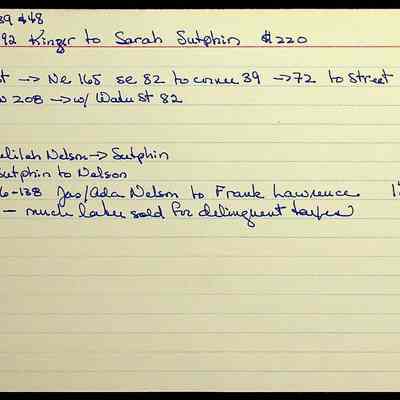 39 &48
92 Kinzer to Sarah Sutphin $220
st → Ne 165 se 82 to corner 39 → 72 to Street
w 208 → w/ Walnu St 82
elilah Nelson → Sutphin
Sutphin to Nelson
6-138 Jas/Ada Nelson to Frank Lawrence 1
— much later sold for delinquent taxes